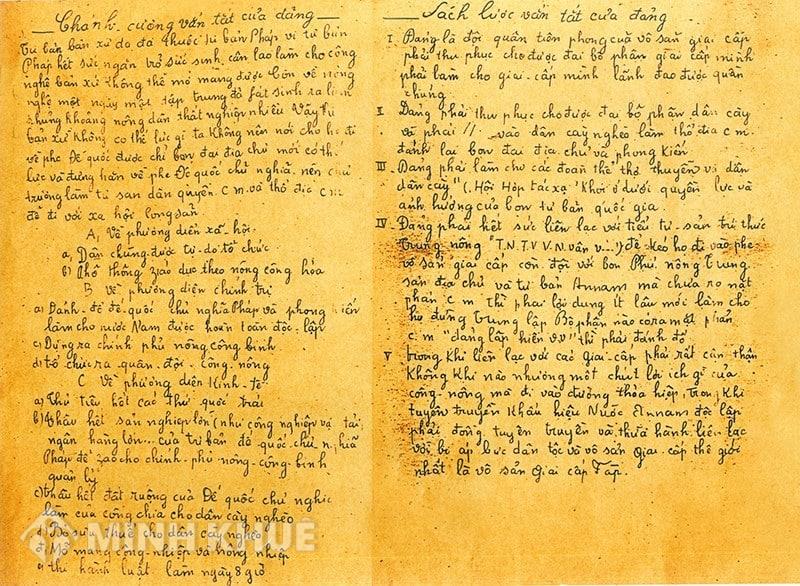 Chánh cương vắn tắt của đảng
Tư bản bản xứ do đã thuộc tư bản Pháp vì tư bản
Pháp hết sức ngăn trở sức sinh sản làm cho công
nghệ bản xứ không thể mở mang được Còn về nông
nghệ một ngày một tập trung đã fát sinh ra lắm
khủng khoảng nông dân thất nghiệp nhiều Vậy tư
bản xứ không có thế lực gì ta không nên nói cho họ đi
về phe Đế quốc được chỉ bọn đại địa chủ mới có thế
lực và đứng hẳn về phe Đế quốc chủ nghĩa nên chủ
trương làm tư sản dân quyền C.m. và thổ địa C m
để đi tới xã hội cộng sản
A, Về phương diện xã hội
a, Dân chúng được tự do tổ chức
b) Phổ thông záo dục theo nông công hóa
B về phương diện chính trị
a) Đánh đổ đế quốc chủ nghĩa Pháp và phong kiến
làm cho nước Nam được hoàn toàn độc lập
c) Dựng ra chính phủ nông công binh
d) tổ chức ra quân đội công nông
C Về phương diện kinh tế
a) Thủ tiêu hết các thứ quốc trái
b) thâu hết sản nghiệp lớn (như công nghiệp vận tải
ngân hàng lớn... của tư bản đế quốc chủ nghĩa
Pháp để zao cho chính phủ nông công binh
quản lý
c) thâu hết đất ruộng của Đế quốc chủ nghĩa
làm của công chia cho dân cày nghèo
d) Bỏ sưu thuế cho dân cày nghèo
đ) Mở mang công nghiệp và nông nghiệp
e) thi hành luật làm ngày 8 giờ
Sách lược vắn tắt của đảng
I. Đảng là đội quân tiên phong của vô sản giai cấp
phải thu phục cho được đại bộ phận giai cấp mình
phải làm cho giai cấp mình lãnh đạo được quần
chúng
II Đảng phải thu phục cho được đại bộ phận dân cày
và phải // vào dân cày nghèo làm thổ địa c m.
đánh lại bọn đại địa chủ và phong kiến
III Đảng phải làm cho các đoàn thể thợ thuyền và dân
dân cày" (. Hội Hợp tác xạ "khỏi ở dưới quyền lực và
ảnh hưởng của bọn tư bản quốc gia.
IV Đảng phải hết sức liên lạc với tiểu tư sản trí thức
trung nông "T.N.T V V.N vân v...) để kéo họ đi vào phe
vô sản giai cấp còn đối với bọn Phú nông Trung
sản địa chủ và tư bản Annam mà chưa rõ mặt
phản C m thì phải lợi dụng ít lâu mới làm cho
họ đứng trung lập Bộ phận nào đã ra mặt phản
c.m "đảng lập hiến vv" thì phải đánh đổ
V trong khi liên lạc với các giai cấp phải rất cẩn thận
không khi nào nhường một chút lợi ích gì của
công nông mà đi vào đường thỏa hiệp, trong khi
tuyên truyền khẩu hiệu Nước Annam độc lập
phải đồng tuyên truyền và thừa hành liên lạc
với bị áp bức dân tộc và vô sản giai cấp thế giới
nhất là vô sản giai cấp Fáp.
MINH KHUÊ